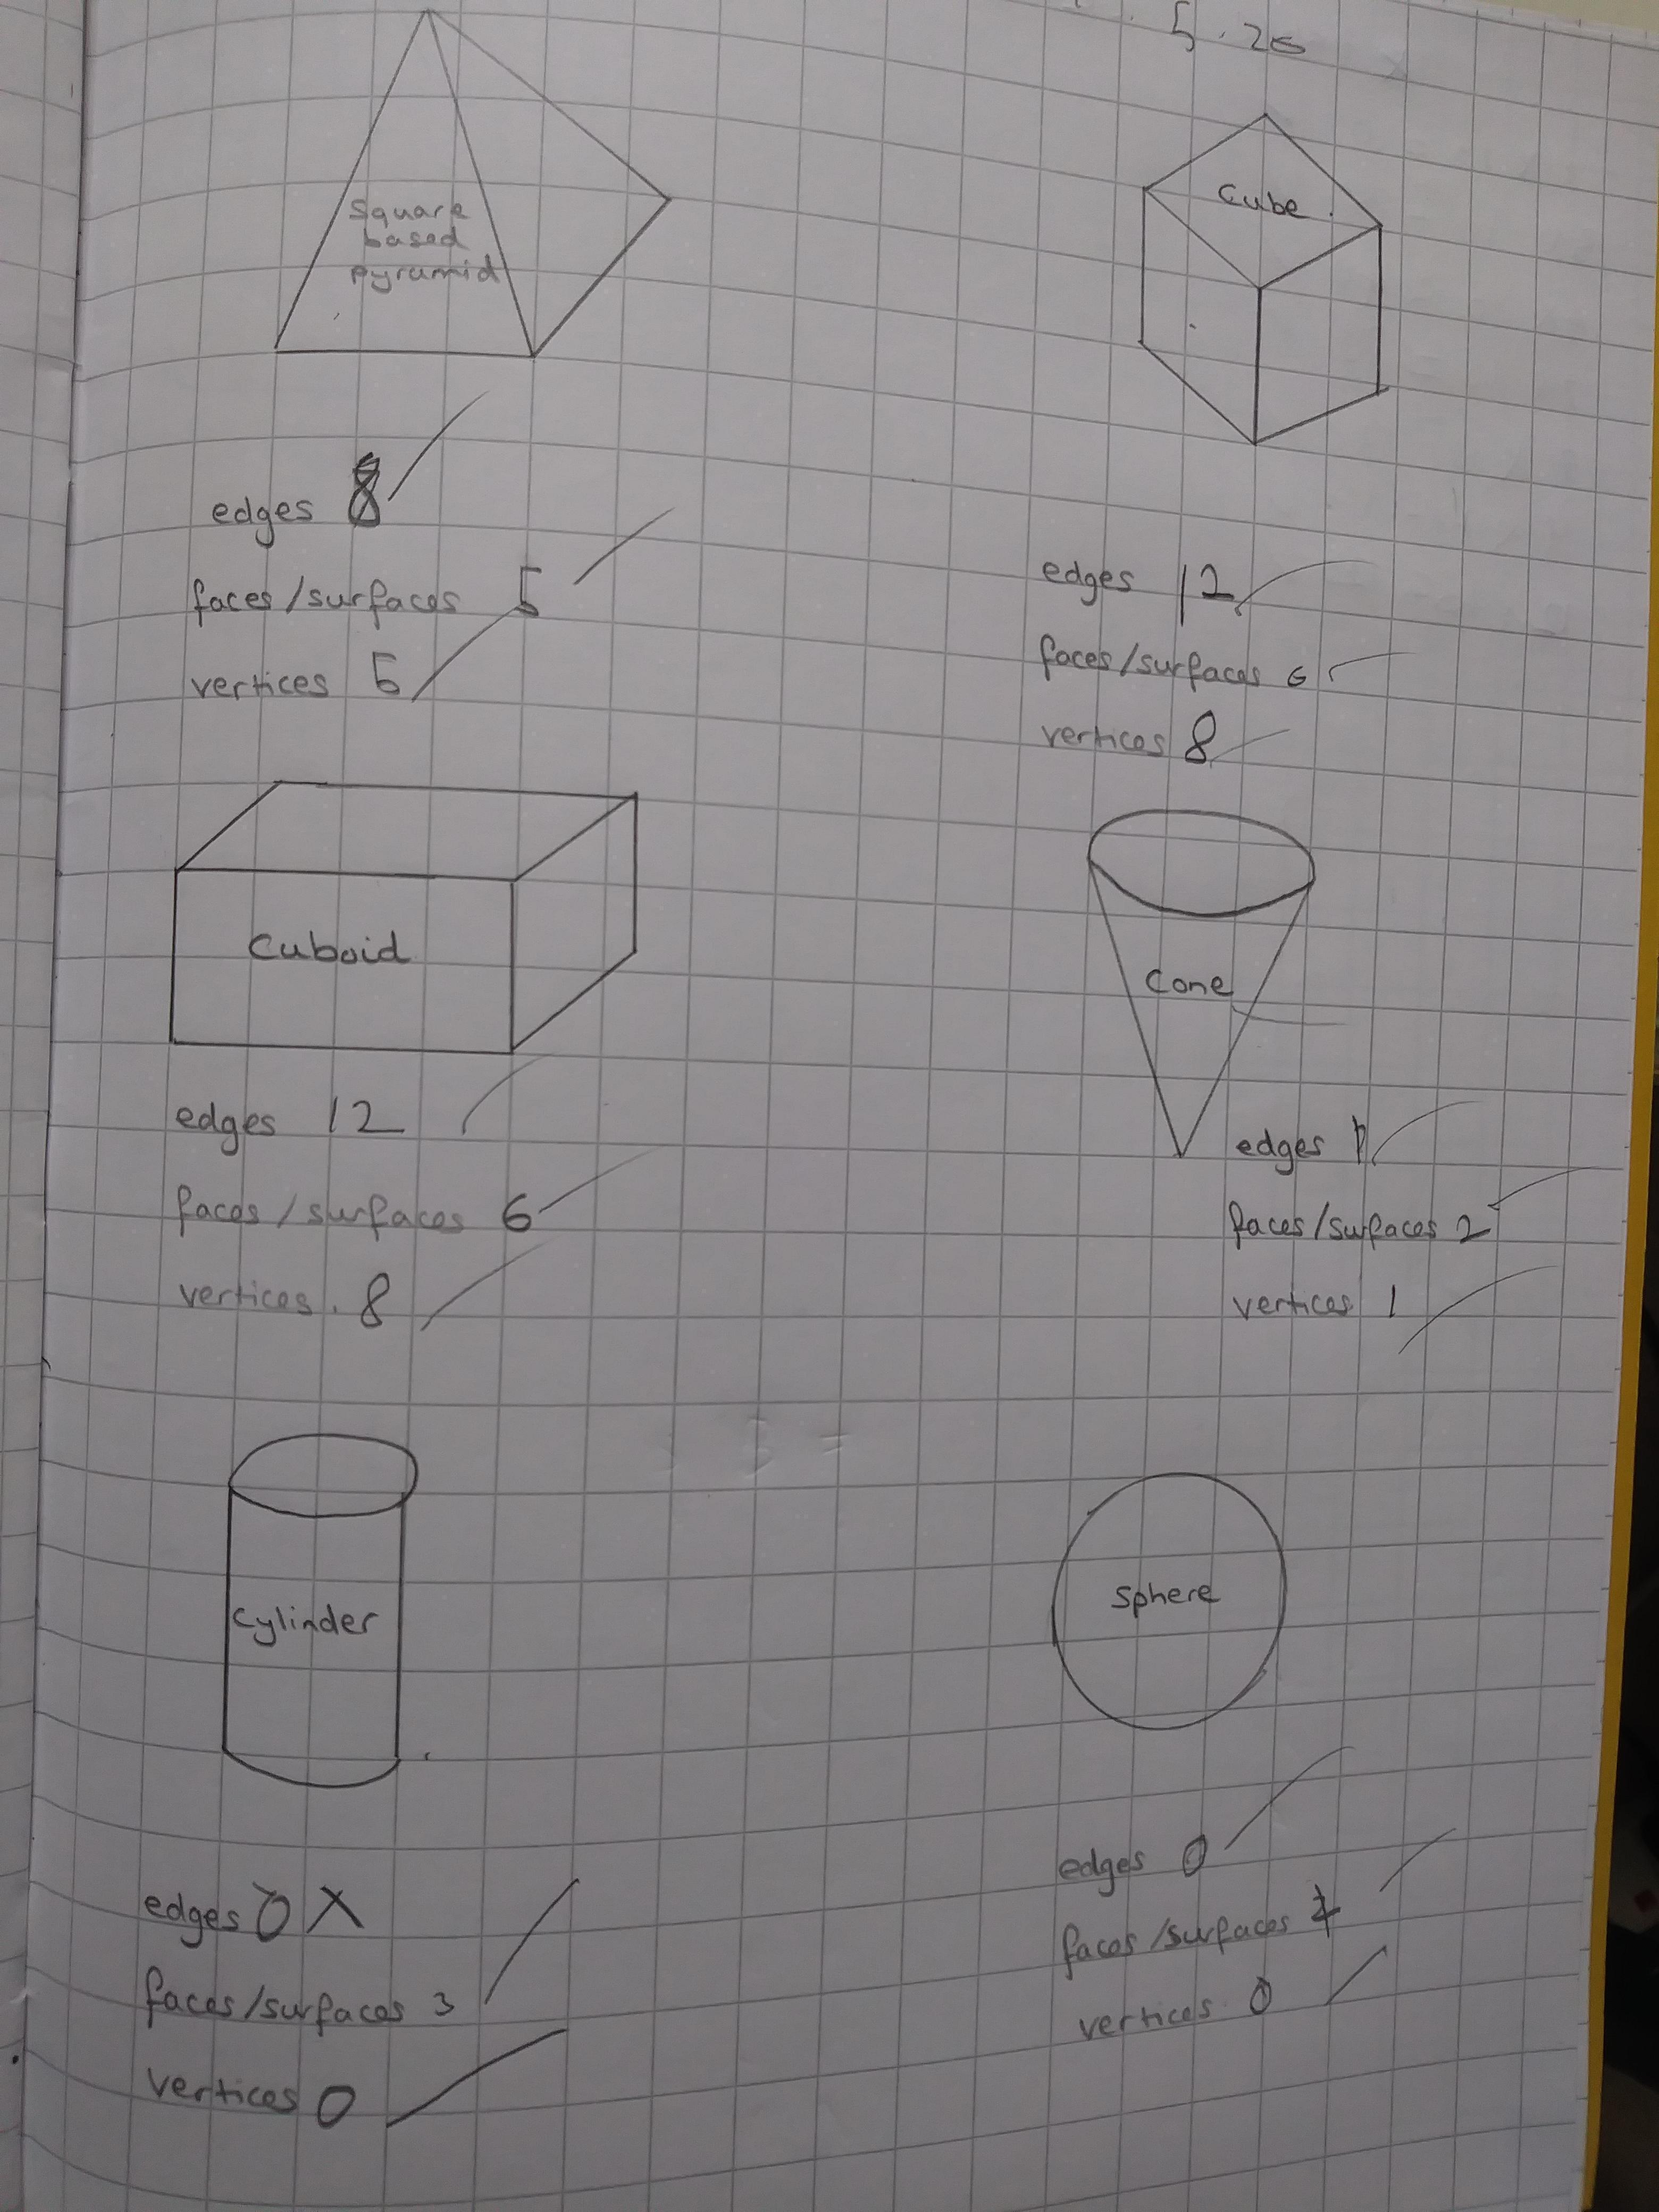 5.26
Square
based
pyramid
edges 8
faces/surfaces 5
vertices 5
Cube
edges 12
faces/surfaces 6
vertices 8
Cuboid
edges 12
faces/surfaces 6
vertices 8
Cone
edges 1
faces/surfaces 2
vertices 1
Cylinder
edges 0 X
faces/surfaces 3
vertices 0
Sphere
edges 0
faces/surfaces
vertices 0